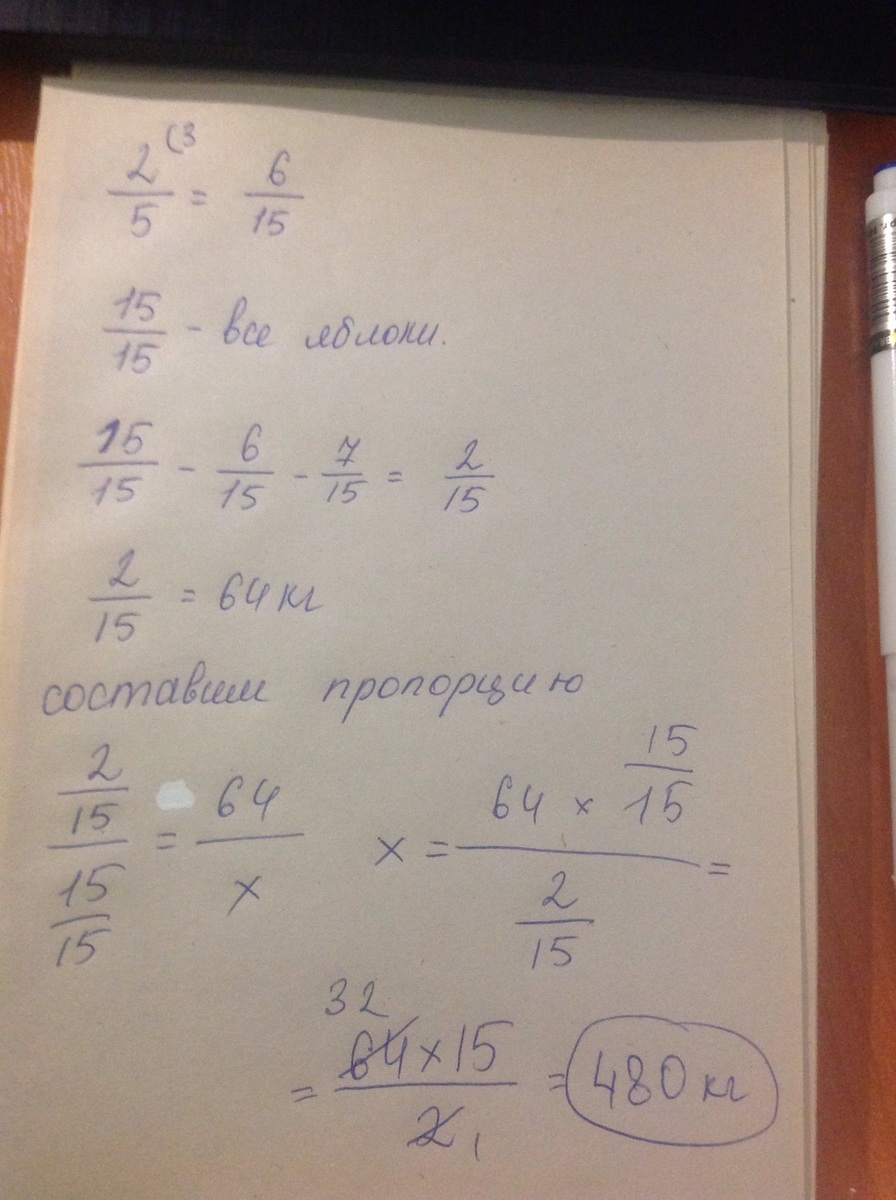 2/5 (3 = 6/15
15/15 - все яблоки.
15/15 - 6/15 - 7/15 = 2/15
2/15 = 64 кг
составим пропорцию
2/15 / 15/15 = 64/x x = 64 × 15/15 / 2/15 =
32
= 64 × 15 / 2 1 = 480 кг